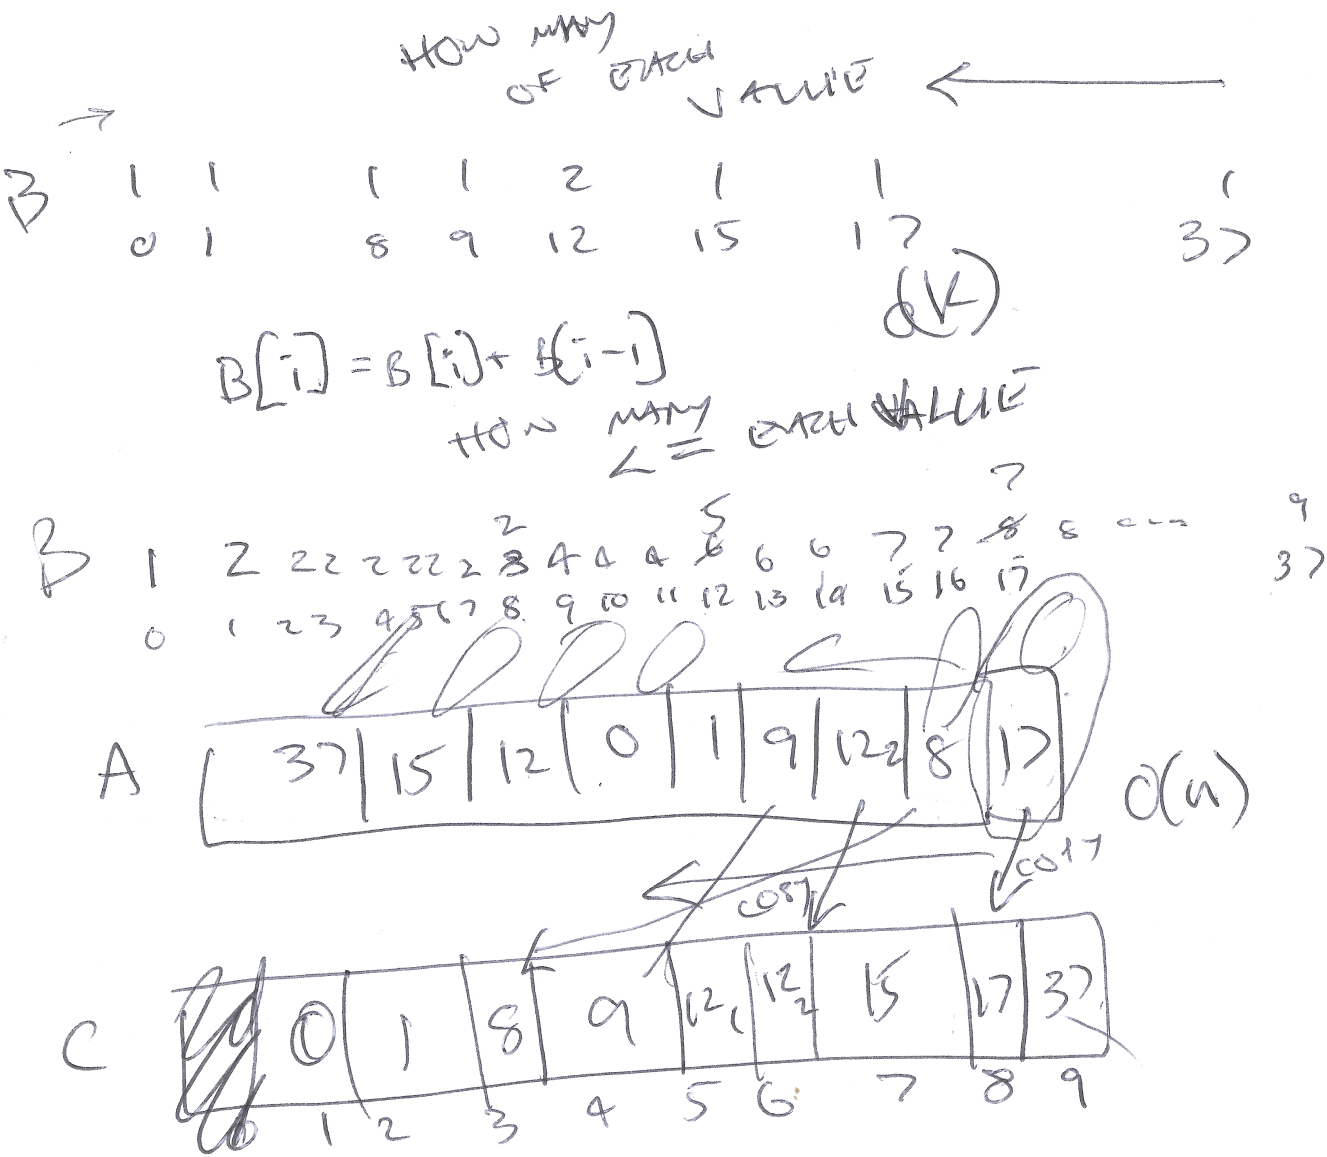 HOW MANY
OF EACH
VALUE
B 1 1 1 1 2 1 1 1
0 1 8 9 12 15 17 37
O(K)
B[i] = B[i] + B[i-1]
HOW MANY
<= EACH VALUE
2 5 7 9
B 1 2 2 2 2 2 2 2 3 4 4 4 6 6 6 7 7 8 8 ---- 37
0 1 2 3 4 5 6 7 8 9 10 11 12 13 14 15 16 17
A 37 15 12 0 1 9 12₂ 8 17 O(n)
C 0 1 8 9 12₁ 12₂ 15 17 37
0 1 2 3 4 5 6 7 8 9